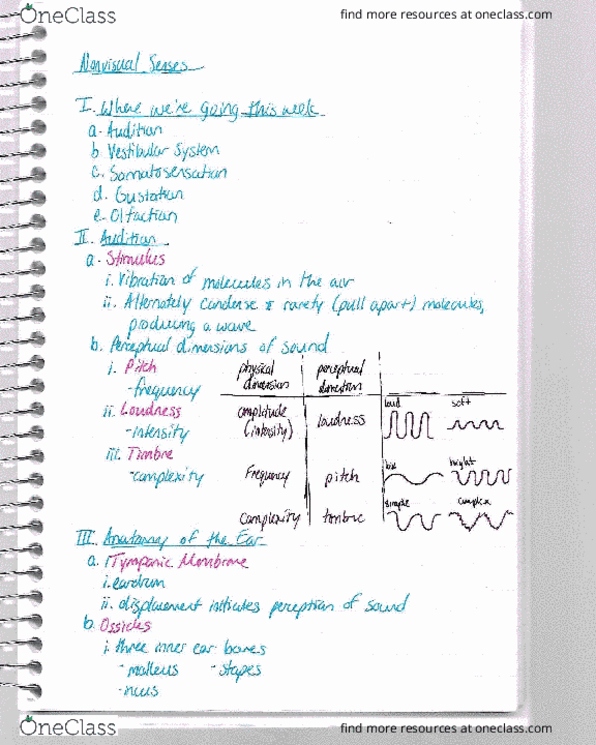 OneClass
find more resources at oneclass.com
Nonvisual Senses
I. Where we're going this week
a. Audition
b. Vestibular System
c. Somatosensation
d. Gustation
e. Olfaction
II. Audition
a. Stimulus
i. Vibration of molecules in the air
ii. Alternately condense & rarefy (pull apart) molecules,
producing a wave
b. Perceptual dimensions of sound
i. Pitch
-frequency
ii. Loudness
-intensity
iii. Timbre
-complexity
physical dimension
perceptual dimension
amplitude (intensity)
loudness
loud
soft
Frequency
pitch
low
hight
Complexity
timbre
simple
complex
III. Anatomy of the Ear
a. Tympanic Membrane
i. eardrum
ii. displacement initiates perception of sound
b. Ossicles
i. three inner ear bones
-malleus -stapes
-incus
OneClass
find more resources at oneclass.com